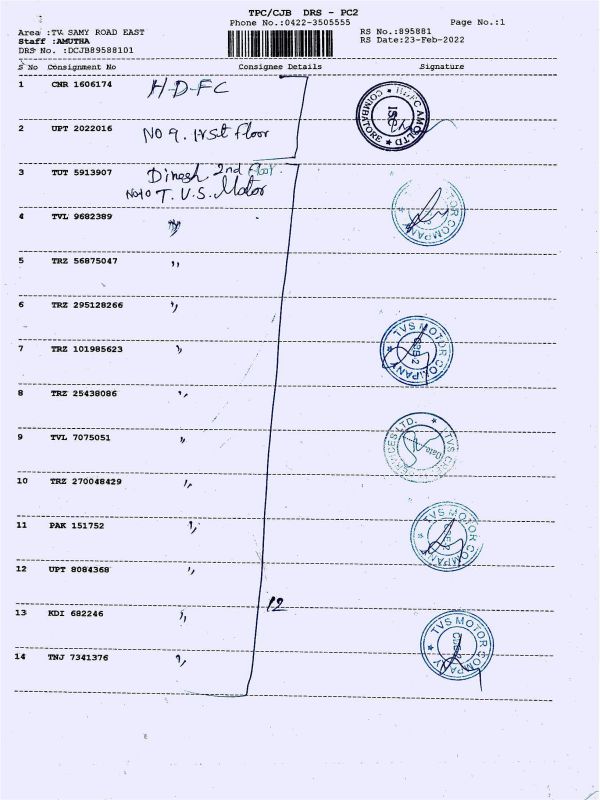 TPC/CJB DRS - PC2
Phone No.:0422-3505555
Page No.:1
Area :TV SAMY ROAD EAST
RS No.:895881
Staff :AMUTHA
RS Date:23-Feb-2022
DRS No. :DCJB89588101
S No Consignment No Consignee Details Signature
1 CNR 1606174 H-D-FC
COIMBATORE
2 UPT 2022016 NO 9. 1rst Floor
3 TUT 5913907 Dinesh 2nd Floor.
No10 T.V.S. Motor
4 TVL 9682389 ,,
TOR COMPANY
5 TRZ 56875047 ,,
6 TRZ 295128266 ,,
7 TRZ 101985623 ,,
TVS MOTOR COMPANY
8 TRZ 25438086 ,,
9 TVL 7075051 ,,
SERVICES LTD. TVS
10 TRZ 270048429 ,,
11 PAK 151752 ,,
TVS MOTOR COMPANY
12 UPT 8084368 ,,
12
13 KDI 682246 ,,
TVS MOTOR COMPANY
14 TNJ 7341376 ,,